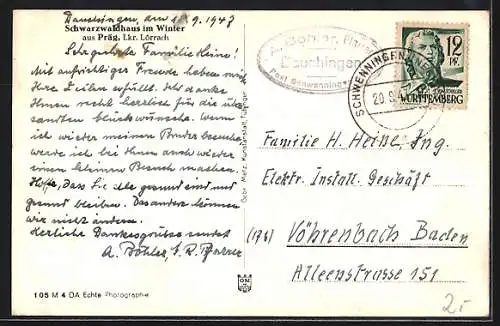 Dauchingen, den 1 9. 1947
Schwarzwaldhaus im Winter
aus Präg, Lkr. Lörrach
Sehr geehrte Familie Heine!
Mit aufrichtiger Freude haben mich
Ihre Zeilen erfüllt. Ich danke
Ihnen recht herzlich für die
Glückwünsche. Wenn
ich wieder meinen Bruder besuche
werde ich bei Ihnen auch wieder
einen kleinen Besuch machen.
Hoffe, dass Sie alle gesund sind und
gesund bleiben. Das andere können
wir nicht ändern.
Herzliche Dankesgrüsse sendet
A. Böhler, Pfarrer
105 M 4 OA Echte Photographie
Gebr. Metz, Kunstanstalt, Tübingen
A. Böhler, Pfarrer
Dauchingen
Post Schwenningen
SCHWENNINGEN
20.9.4
12
PF.
WÜRTTEMBERG
Familie H. Heine, Ing.
Elektr. Install. Geschäft
(17b) Vöhrenbach Baden
Alleenstrasse 151
2.-